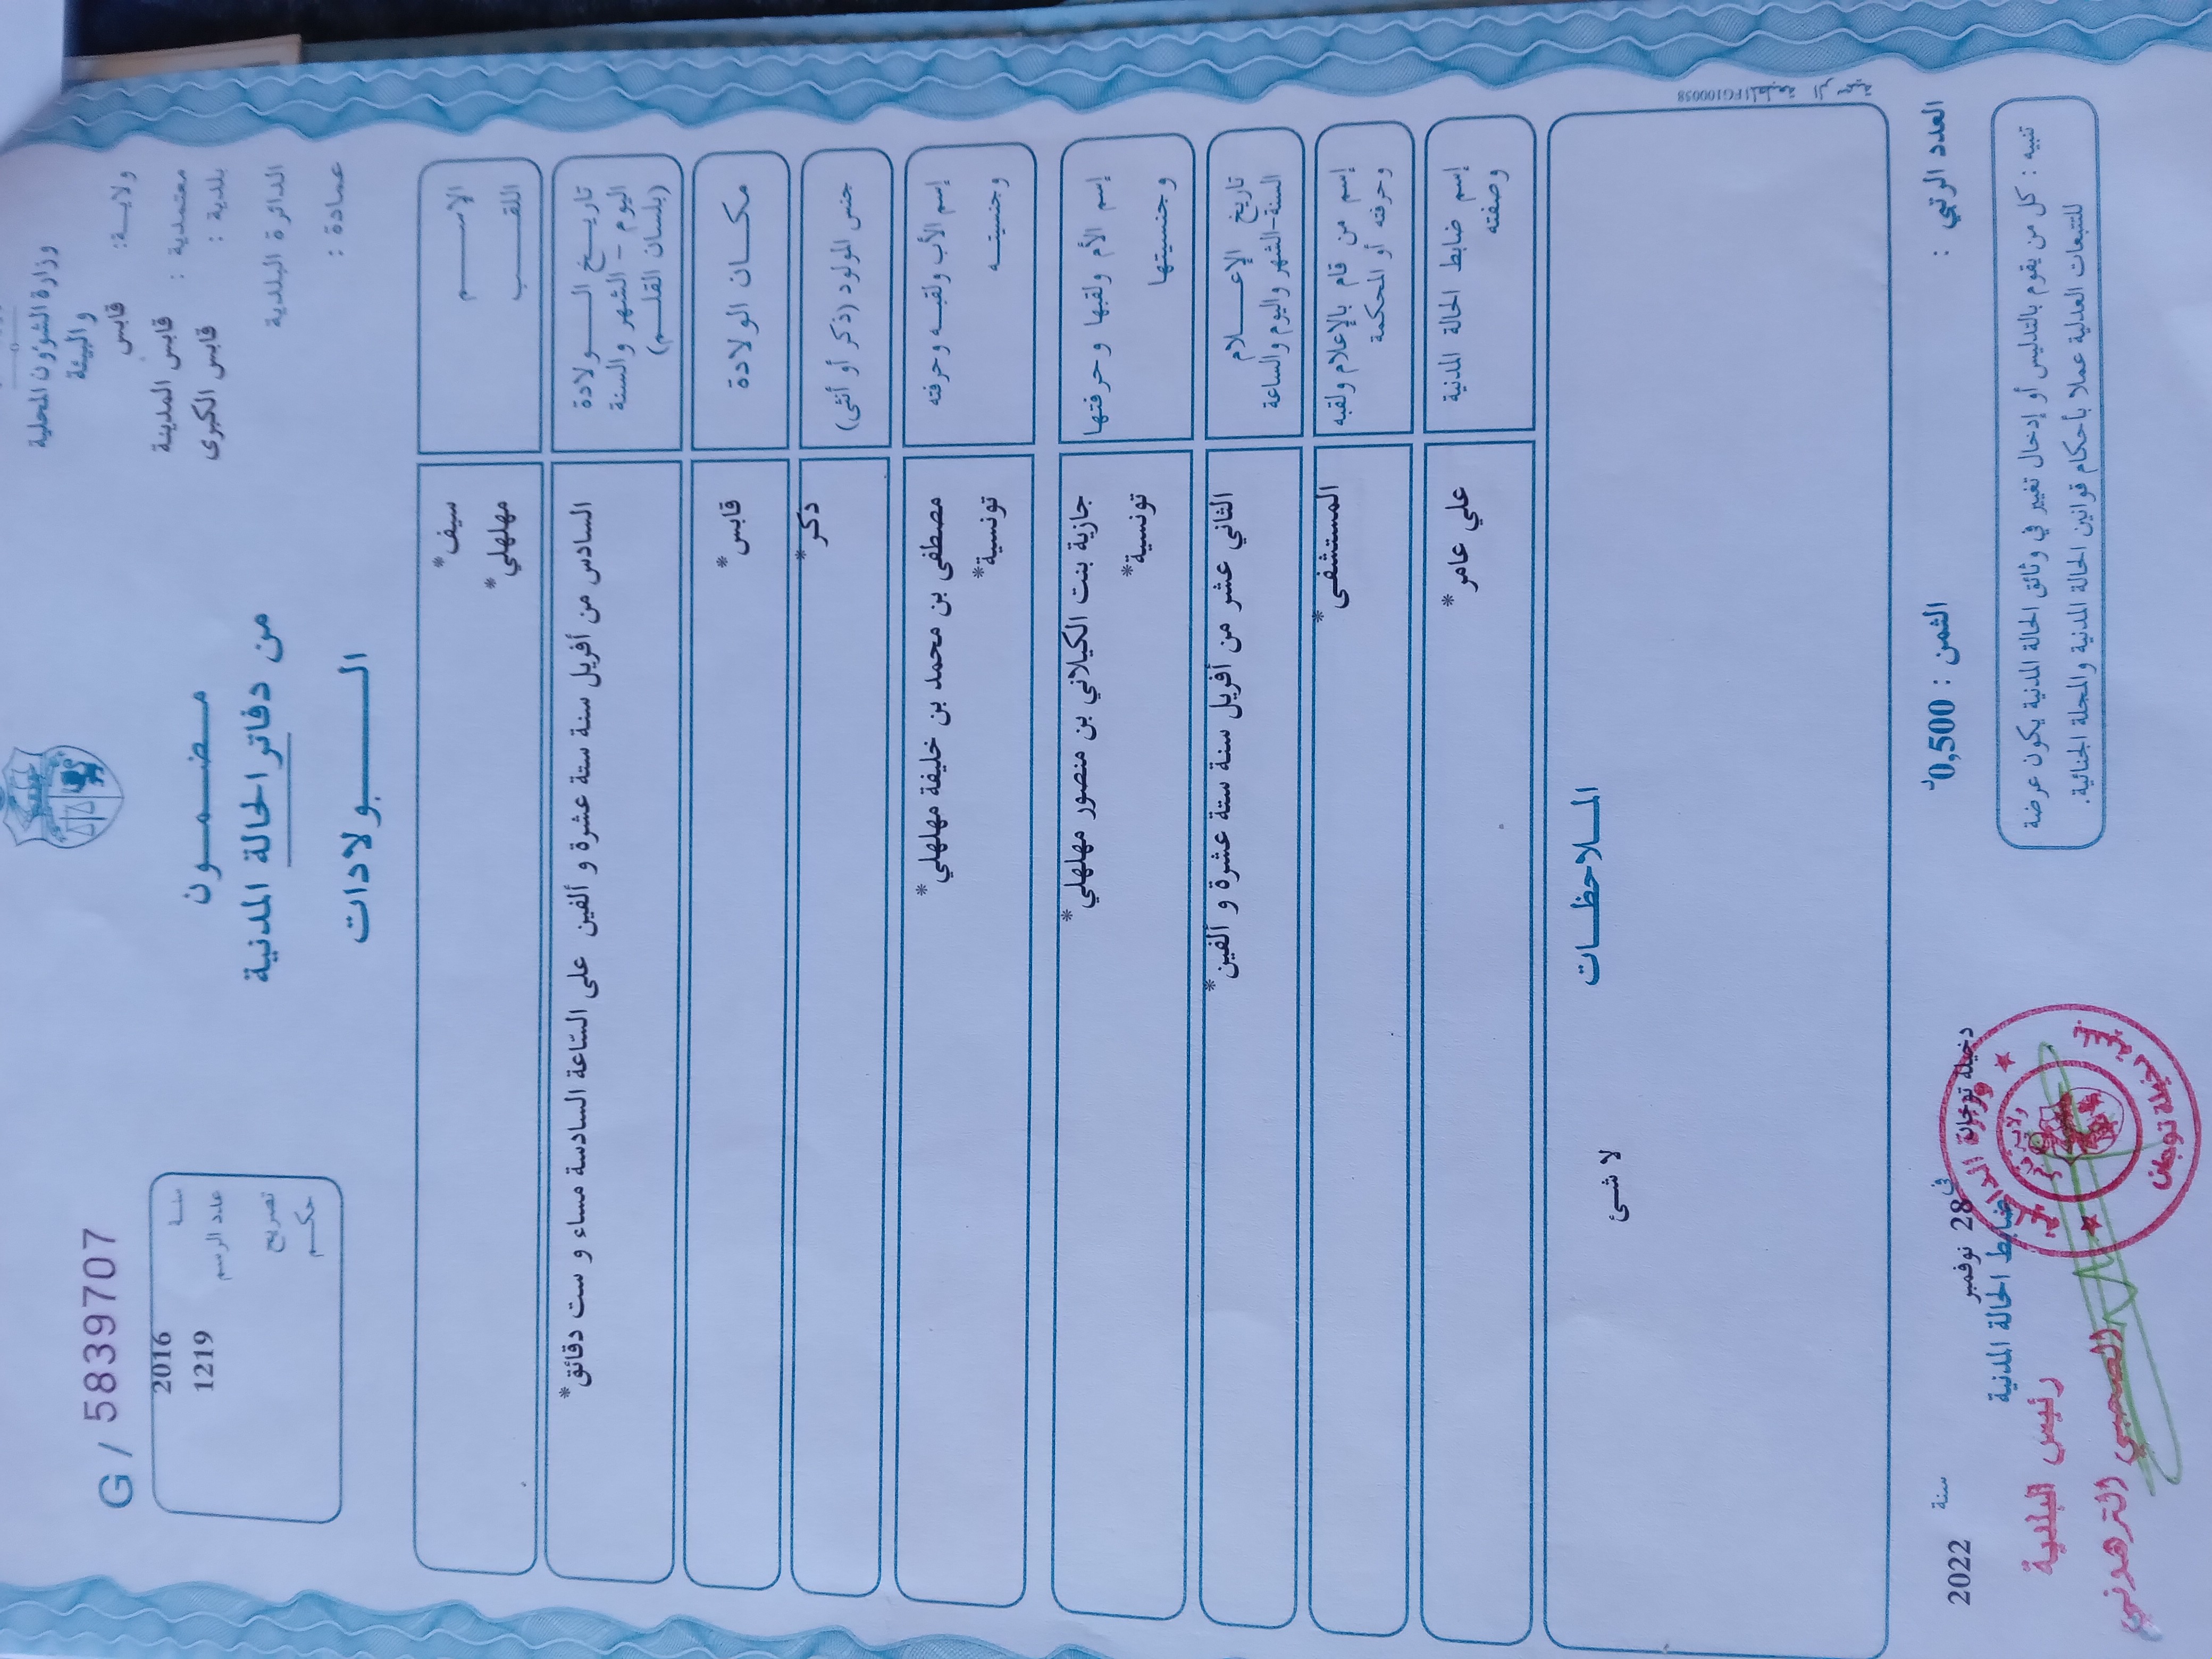 وزارة الشؤون المحلية
والبيئة
ولاية: قابس
معتمدية : قابس المدينة
بلدية : قابس الكبرى
الدائرة البلدية
عمادة :
مضمون
من دفاتر الحالة المدنية
الولادات
G / 5839707
سنة 2016
عدد الرسم 1219
تصريح
حكم
الإسم سيف*
اللقب مهلهلي*
تاريخ الولادة
اليوم - الشهر والسنة
(بلسان القلم)
السادس من أفريل سنة ستة عشرة و ألفين على الساعة السادسة مساء و ست دقائق*
مكان الولادة قابس*
جنس المولود (ذكر أو أنثى) ذكر*
إسم الأب ولقبه وحرفته مصطفى بن محمد بن خليفة مهلهلي*
وجنسيته تونسية*
إسم الأم ولقبها وحرفتها جازية بنت الكيلاني بن منصور مهلهلي*
وجنسيتها تونسية*
تاريخ الإعلام
السنة-الشهر واليوم والساعة
الثاني عشر من أفريل سنة ستة عشرة و ألفين*
إسم من قام بالإعلام ولقبه
وحرفته أو المحكمة
المستشفى*
إسم ضابط الحالة المدنية
وصفته
علي عامر*
الملاحظات
لا شئ
العدد الرتبي :
الثمن : 0,500د
دخيلة توجان في 28 نوفمبر سنة 2022
ضابط الحالة المدنية
رئيس البلدية
الترهوني
تنبيه : كل من يقوم بالتدليس أو إدخال تغيير في وثائق الحالة المدنية يكون عرضة
للتتبعات العدلية عملا بأحكام قوانين الحالة المدنية والمجلة الجنائية.